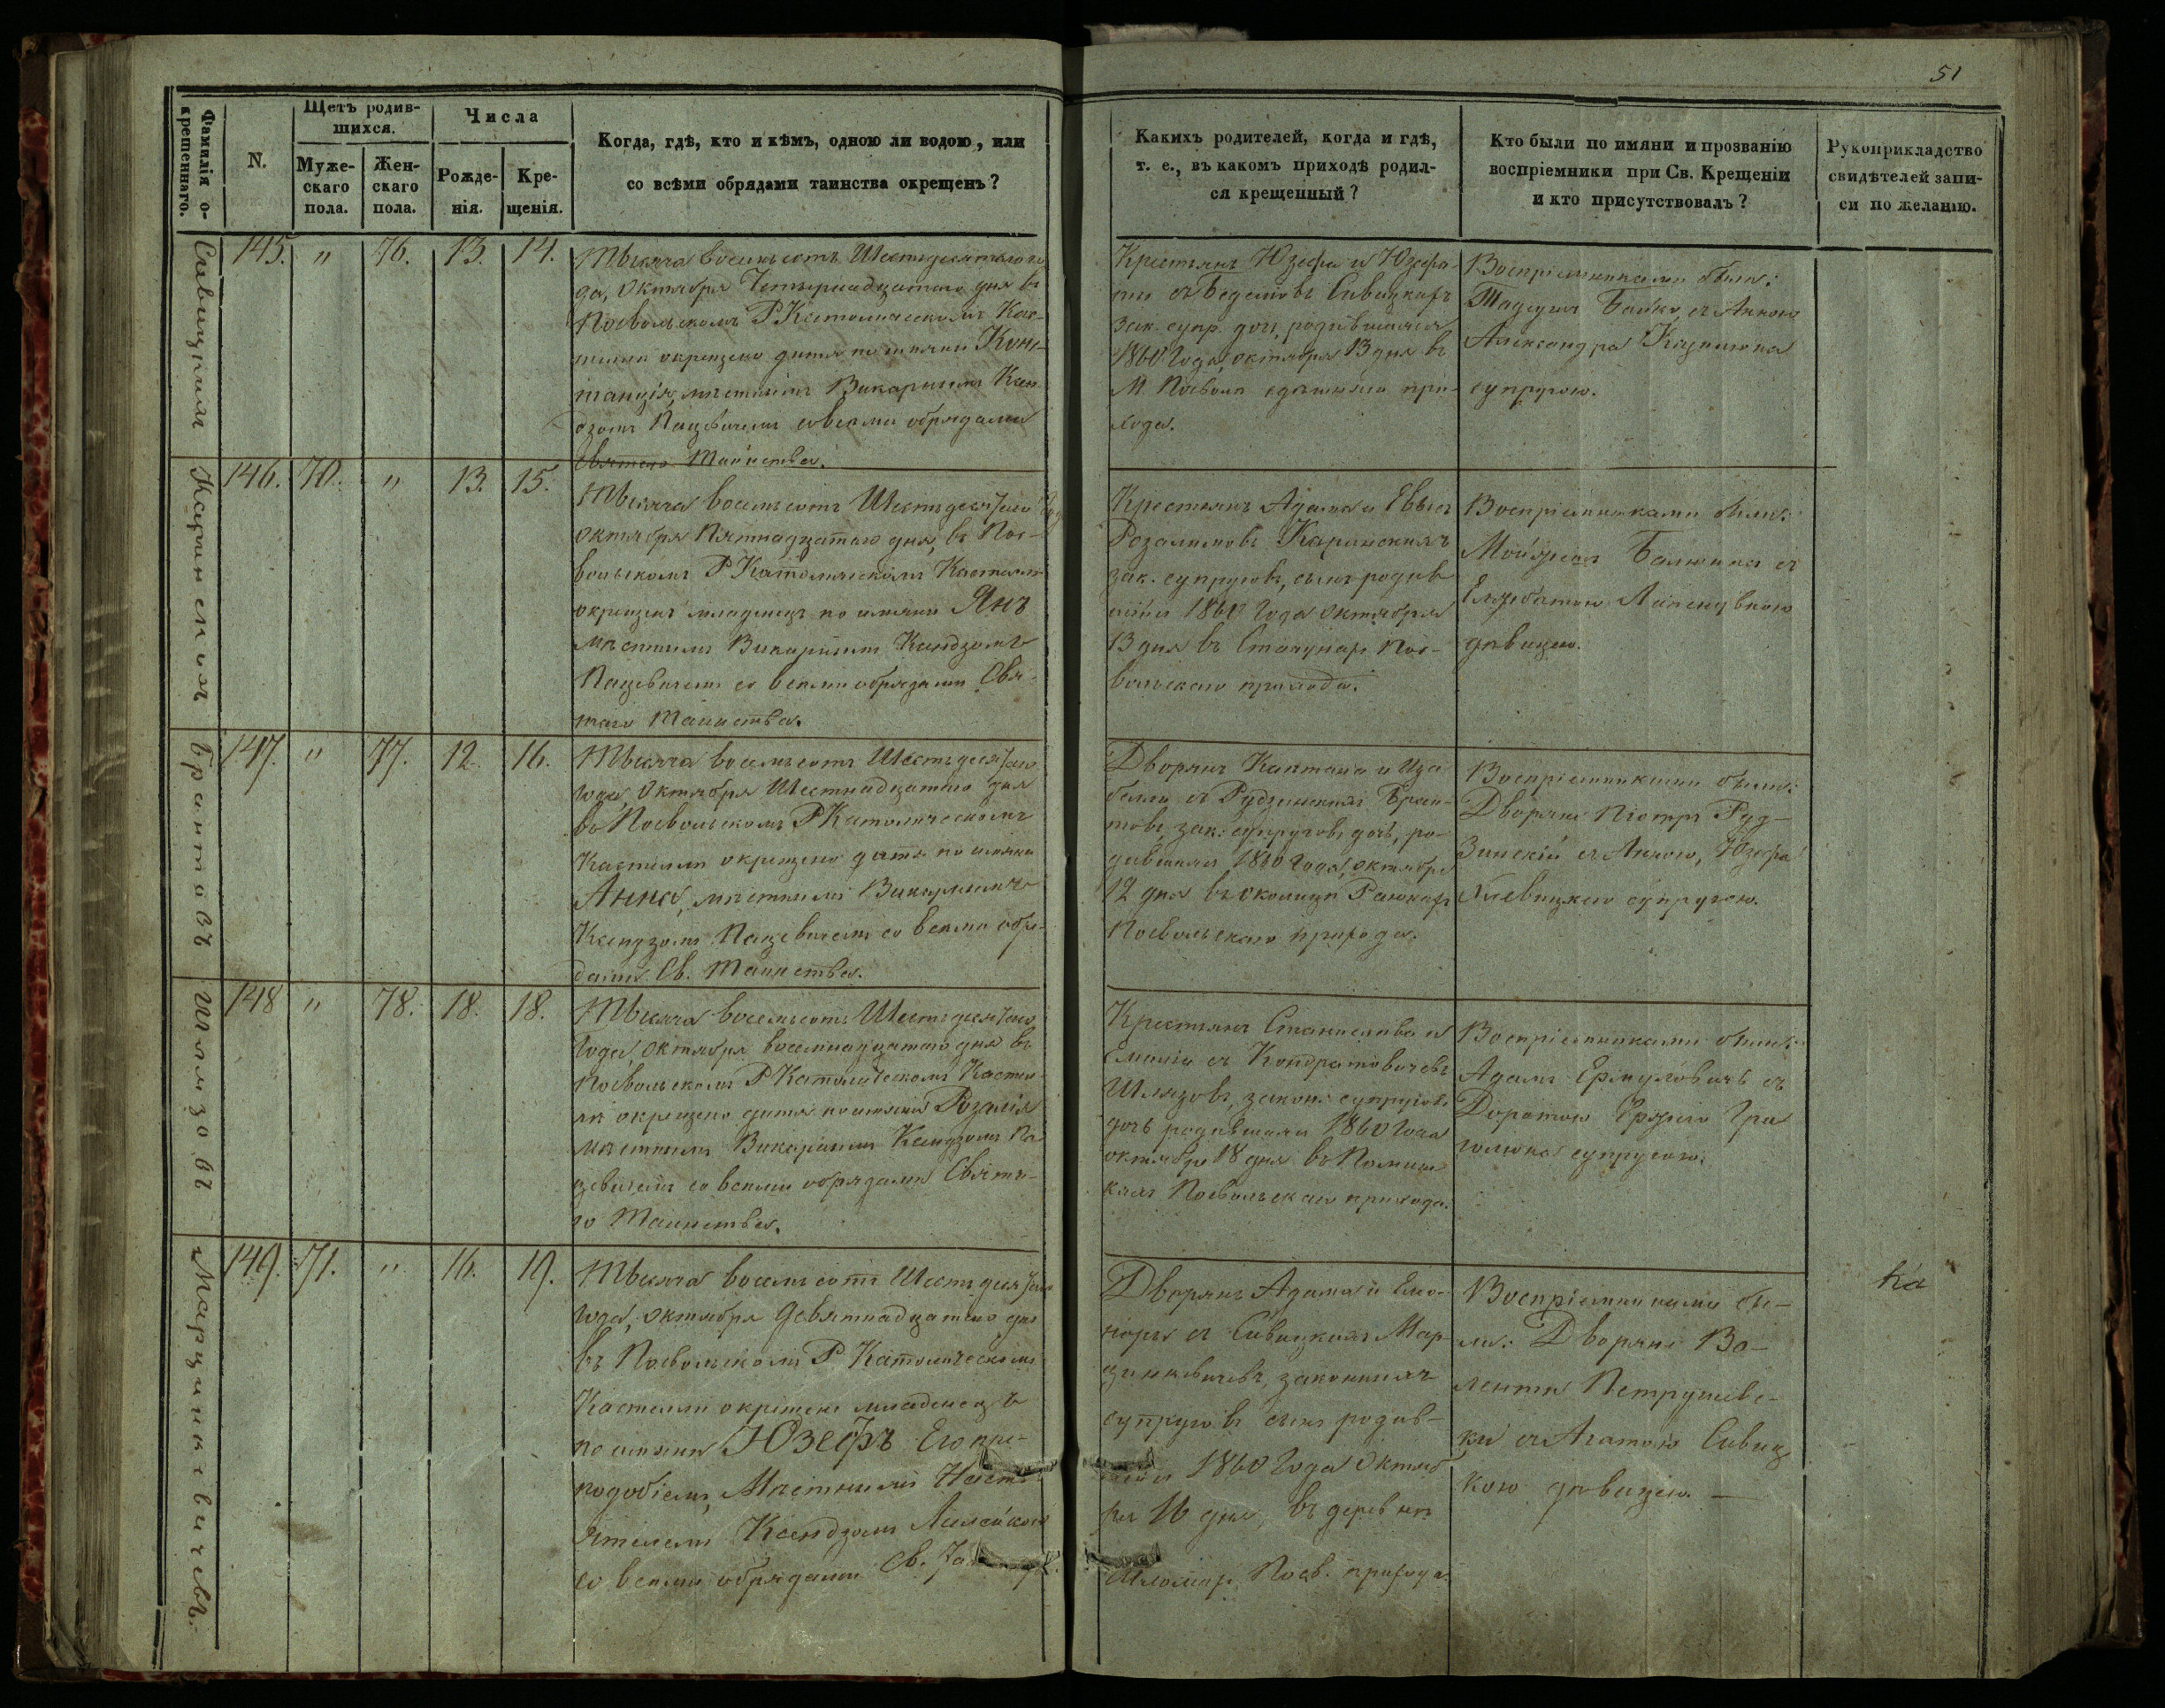 51
Фамилія о-
крещеннаго.
N.
Щетъ родив-
шихся.
Муже-
скаго
пола.
Жен-
скаго
пола.
Числа
Рожде-
нія.
Кре-
щенія.
Когда, гдѣ, кто и кѣмъ, одною ли водою, или
со всѣми обрядами таинства окрещенъ?
Какихъ родителей, когда и гдѣ,
т. е., въ какомъ приходѣ родил-
ся крещенный?
Кто были по имяни и прозванію
воспріемники при Св. Крещеніи
и кто присутствовалъ?
Рукоприкладство
свидѣтелей запи-
си по желанію.
Сивицкихъ
145. " 76. 13. 14.
Тысяча восемьсотъ Шестьдесятаго го
да, Октября Четырнадцатаго дня въ
Посвольскомъ Р Католическомъ Кос-
окрещено дитя по имяни Конс-
танція, мѣстнымъ Викаріемъ Ксен
дзомъ Пацевичемъ со всѣми обрядами
Святаго Таинства.
Крестьянъ Юзефа и Юзефа-
ты съ Сивицкихъ
зак. супр. дочь, родившаяся
1860 Года, октября 13 дня въ
М. Посволѣ сдѣшняго при-
хода.
Воспріемниками были:
Тадеушъ Байко, съ Анною
Александра
супругою.
146. 70. " 13. 15.
Тысяча восемьсотъ Шестьдесятаго
Октября Пятнадцатаго дня, въ Пос-
вольскомъ Р Католическомъ Костели
окрещенъ младенецъ по имяни Янъ
мѣстнымъ Викаріемъ Ксендзомъ
Пацевичемъ со всѣми обрядами Свя-
таго Таинства.
Крестьянъ Адама и Евы съ
зак. супруговъ, сынъ родив
шійся 1860 Года Октября
13 дня въ Пос-
вольскаго прихода.
Воспріемниками были:
съ
дѣвицею.
Брантовъ
147. " 77. 12. 16.
Тысяча восемьсотъ Шестьдесятаго
года, Октября Шестнадцатаго дня
въ Посвольскомъ Р Католическомъ
Костели окрещено дитя по имяни
Анна, мѣстнымъ Викаріемъ
Ксендзомъ Пацевичемъ со всѣми обря-
дами Св. Таинства.
Дворянъ и Иза
белли съ Рудзинскихъ Бран-
товъ, зак. супруговъ, дочь, ро-
дившаяся 1860 года, октября
12 дня въ околицѣ
Посвольскаго прихода.
Воспріемниками были:
Дворяне Піотръ Руд-
зинскій съ Анною, Юзефа
супругою.
Шлязовъ
148 " 78. 18. 18.
Тысяча восемьсотъ Шестьдесятаго
Года, Октября восемнадцатаго дня въ
Посвольскомъ Р Католическомъ Косте-
лѣ окрещено дитя по имяни Розалія
мѣстнымъ Викаріемъ Ксендзомъ Па
цевичемъ со всѣми обрядами Свята-
го Таинства.
Крестьянъ Станислава и
Емиліи съ Кондратовичевъ
Шлязовъ, закон. супруговъ
дочь родившаяся 1860 Года
октября 18 дня въ
Посвольскаго прихода.
Воспріемниками были:
Адамъ съ
Доротою
супругою.
Марцинкевичевъ.
149. 71. " 16. 19.
Тысяча восемьсотъ Шестьдесятаго
Года, Октября Девятнадцатаго дня
въ Посвольскомъ Р. Католическомъ
Костели окрещенъ младенецъ
по имяни Юзефъ Его пре-
подобіемъ, Мѣстнымъ Насто
ятелемъ Ксендзомъ
со всѣми обрядами Св.
Дворянъ Адама и Елео-
норы съ Сивицкихъ Мар-
цинкевичевъ, законныхъ
супруговъ сынъ родив-
шійся 1860 Года Октяб
ря 16 дня, въ деревнѣ
Посв. прихода.
Воспріемниками бы-
ли: Дворяне Ва-
лентій Петрушевс-
кій съ Агатою Сивиц
кою дѣвицею. —